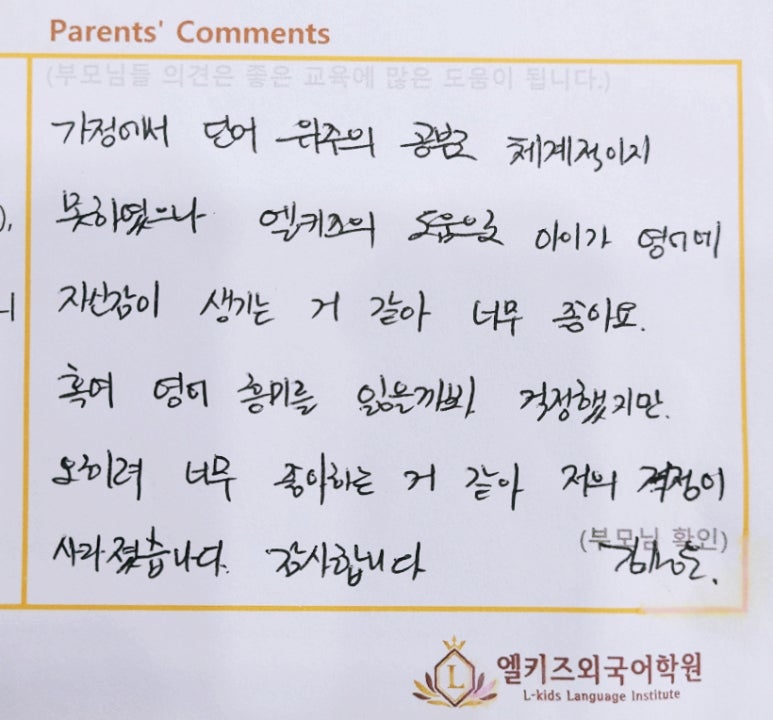 Parents' Comments
(부모님들 의견은 좋은 교육에 많은 도움이 됩니다.)
가정에서 단어 위주의 공부로 체계적이지
), 못하였으나 엘키즈의 도움으로 아이가 영어에
니 자신감이 생기는 거 같아 너무 좋아요.
혹여 영어 흥미를 잃을까봐 걱정했지만.
오히려 너무 좋아하는 거 같아 저의 걱정이
(부모님 확인)
사라졌습니다. 감사합니다
L
엘키즈외국어학원
L-kids Language Institute